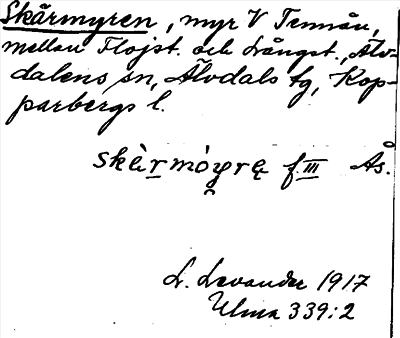 Skärmyren, myr V Tennån,
mellan Flojst. och Långst., Älv-
dalens sn, Älvdals tg, Kop-
parbergs l.
skèrmóyrę f. III Ås.
L. Levander 1917
Ulma 339:2